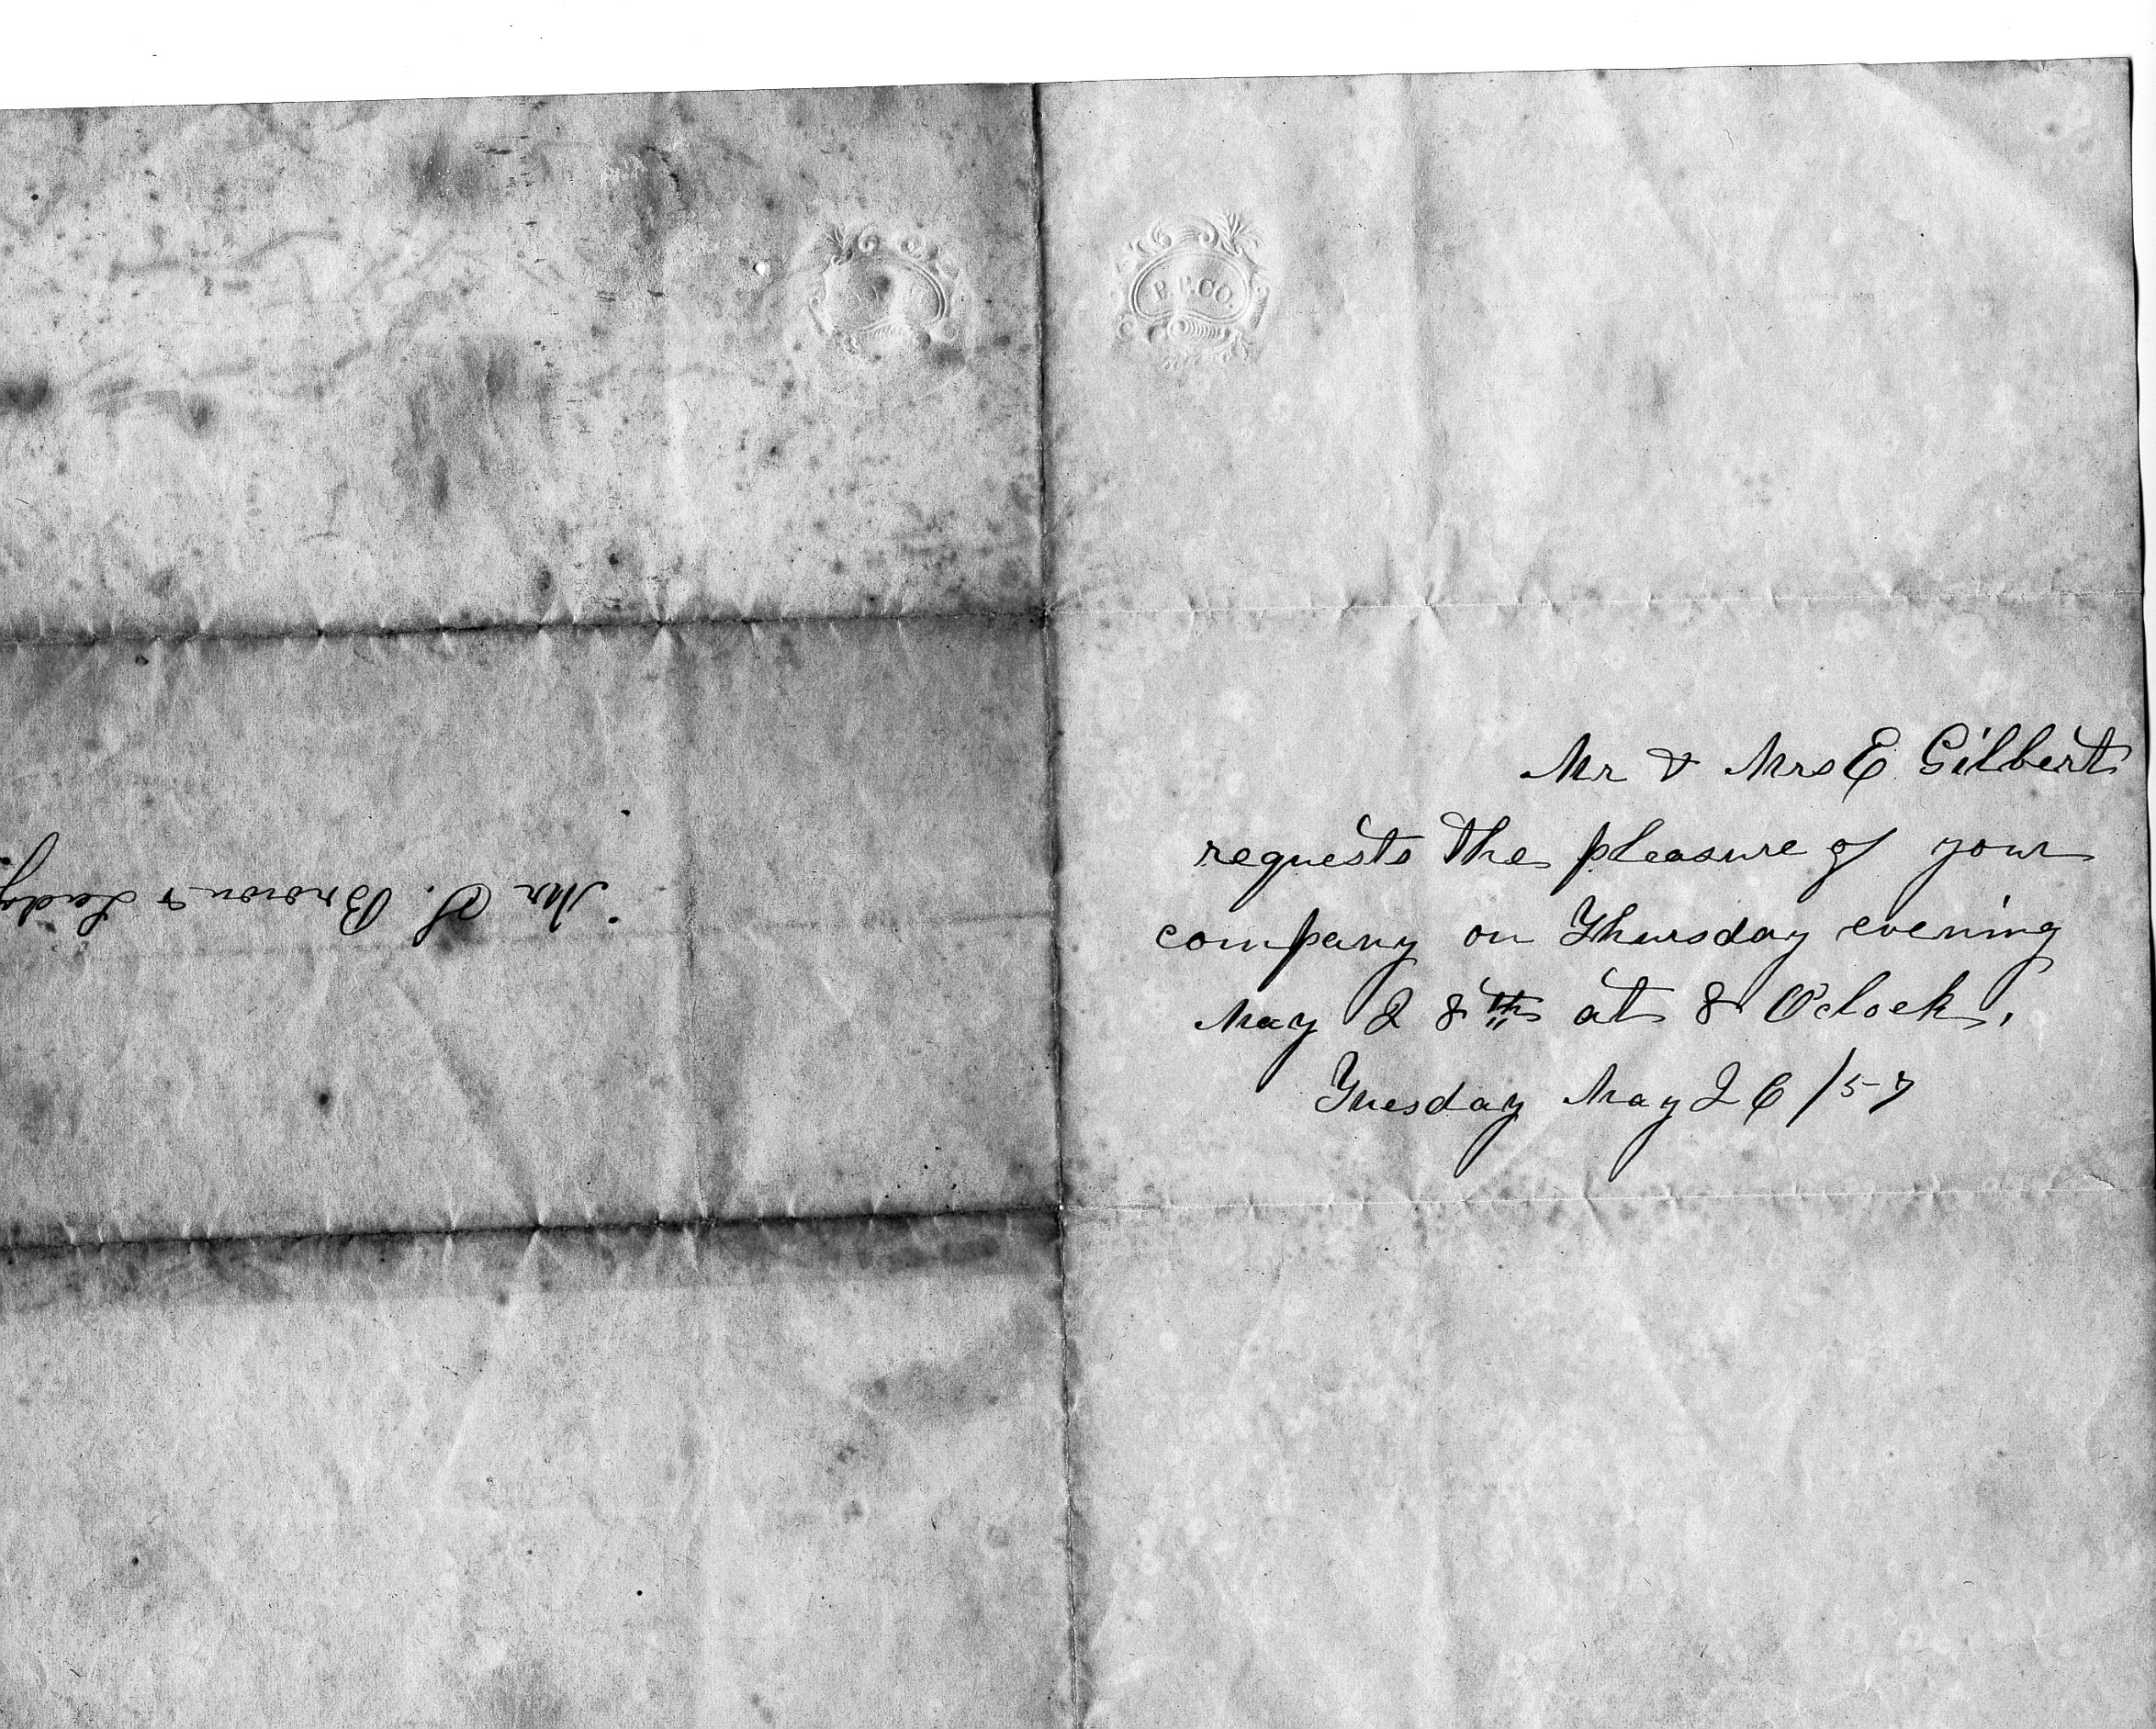 P.P.CO.
Mr & Mrs E Gilbert
requests the pleasure of your
company on Thursday evening
May 28th at 8 O'clock.
Tuesday May 26/57
Mr S. Brown & Lady